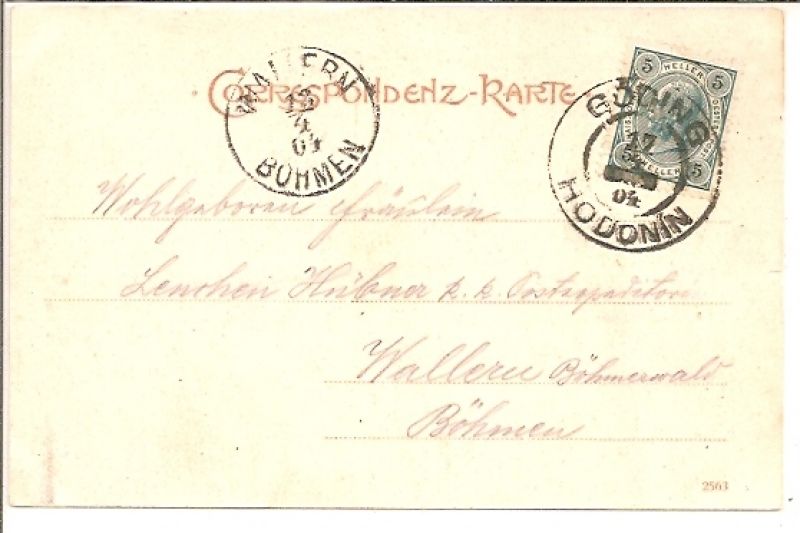 CORRESPONDENZ-KARTE
WALLERN
4
04
BÖHMEN
5 HELLER 5
5 HELLER 5
GÖDING
17
04
HODONÍN
Wohlgeboren Fräulein
Lenchen Hübner k. k. Postexpeditorin
Wallern Böhmerwald
Böhmen
2563